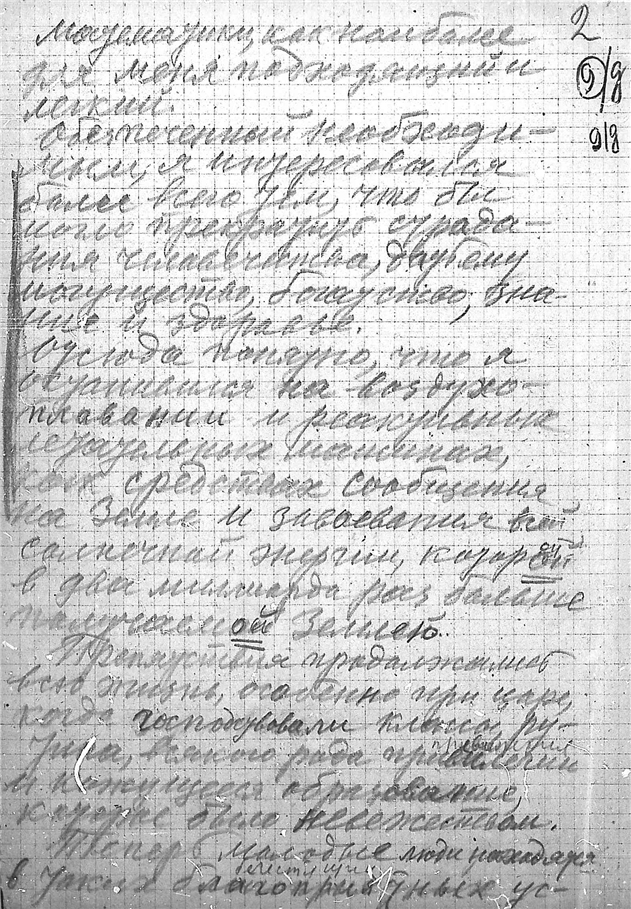 2
математику, как наиболее
9/д
для меня подходящий и
легкий.
9/8
Обеспеченный необходи-
мым, я интересовался
более всего тем, что бы
могло прекратить страда-
ния человечества, дать ему
могущество, богатство, зна-
ние и здоровье.
Отсюда понятно, что я
остановился на воздухо-
плавании и реактивных
летательных машинах,
как средствах сообщения
на Земле и завоевания всей
солнечной энергии, которой
в два миллиарда раз больше
получаемой Землею.
Препятствия продолжались
всю жизнь, особенно при царе,
когда господствовали класса, ру-
тина, всякого рода привилегии
и кажущееся образование,
которое было невежеством.
Теперь молодые люди находятся
в таких благоприятных ус-